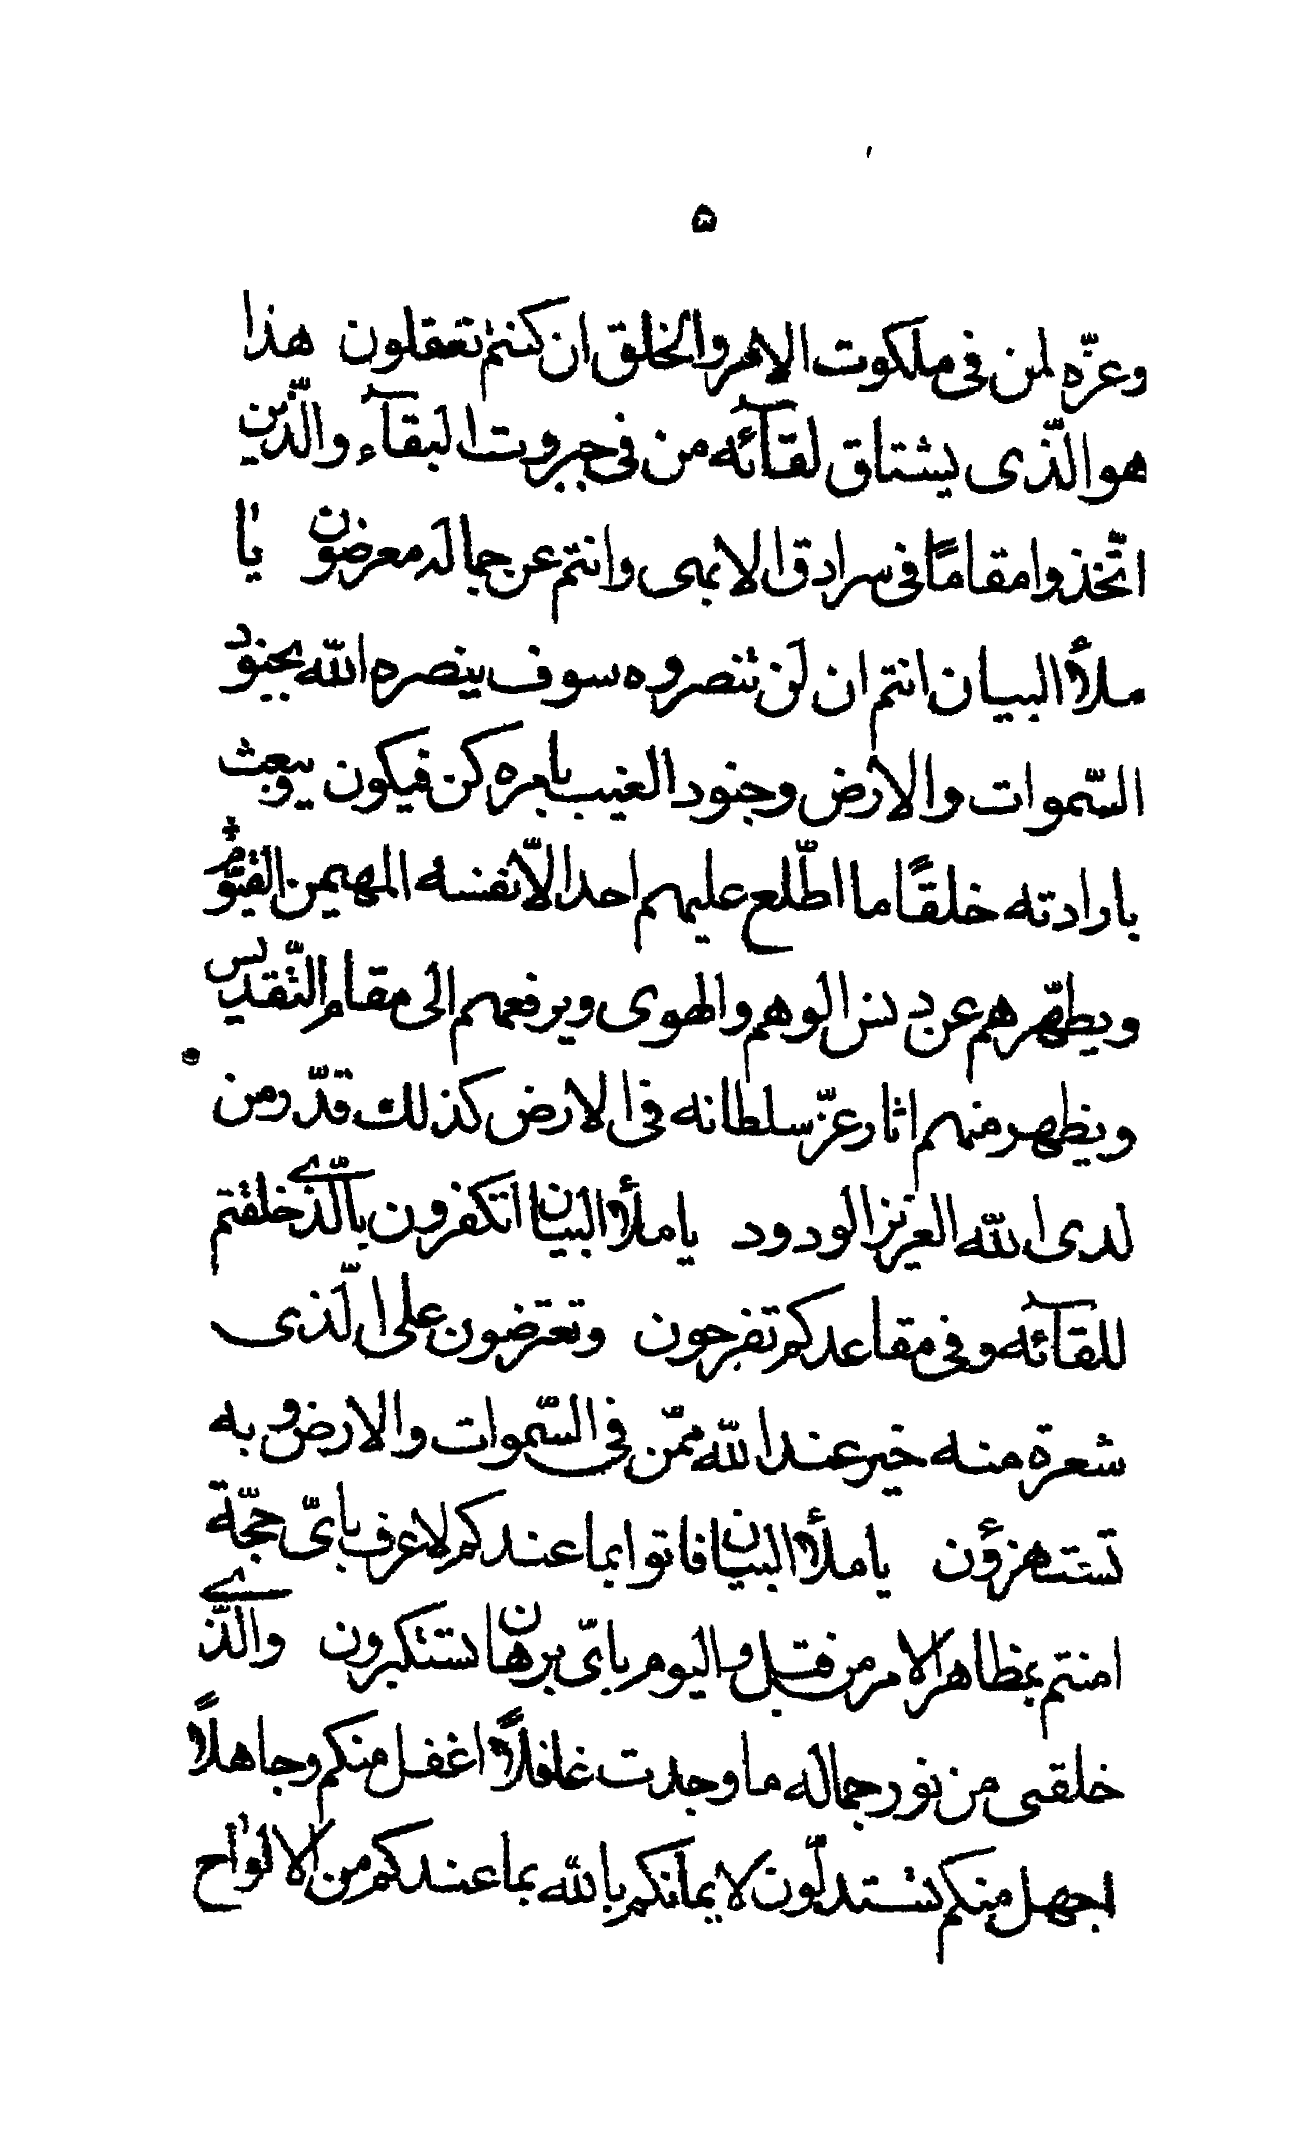 ۵
وعزّه لمن فى ملكوت الامر والخلق ان كنتم تعقلون هذا
هو الّذى يشتاق لقآئه من فى جبروت البقآء والّذين
اتّخذوا مقامًا فى سرادق الابهى وانتم عن جماله معرضون يا
ملأ البيان انتم ان لن تنصروه سوف ينصره الله بجنود
السّموات والارض وجنود الغيب بامره كن فيكون ويبعث
بارادته خلقًا ما اطّلع عليهم احد الّا نفسه المهيمن القيّوم
ويطهّرهم عن دنس الوهم والهوى ويرفعهم الى مقام التّقديس
ويظهر منهم اثار عزّ سلطانه فى الارض كذلك قدّر من
لدى الله العزيز الودود يا ملأ البيان اتكفرون بالّذى خلقتم
للقآئه وفى مقاعدكم تفرحون وتعترضون على الّذى
شعرة منه خير عند الله ممّن فى السّموات والارض وبه
تستهزؤن يا ملأ البيان فاتوا بما عندكم لاعرف باىّ حجّة
امنتم بمظاهر الامر من قبل واليوم باىّ برهان تستكبرون والّذى
خلقنى من نور جماله ما وجدت غافلًا اغفل منكم وجاهلًا
اجهل منكم تستدلّون لايمانكم بالله بما عندكم من الالواح